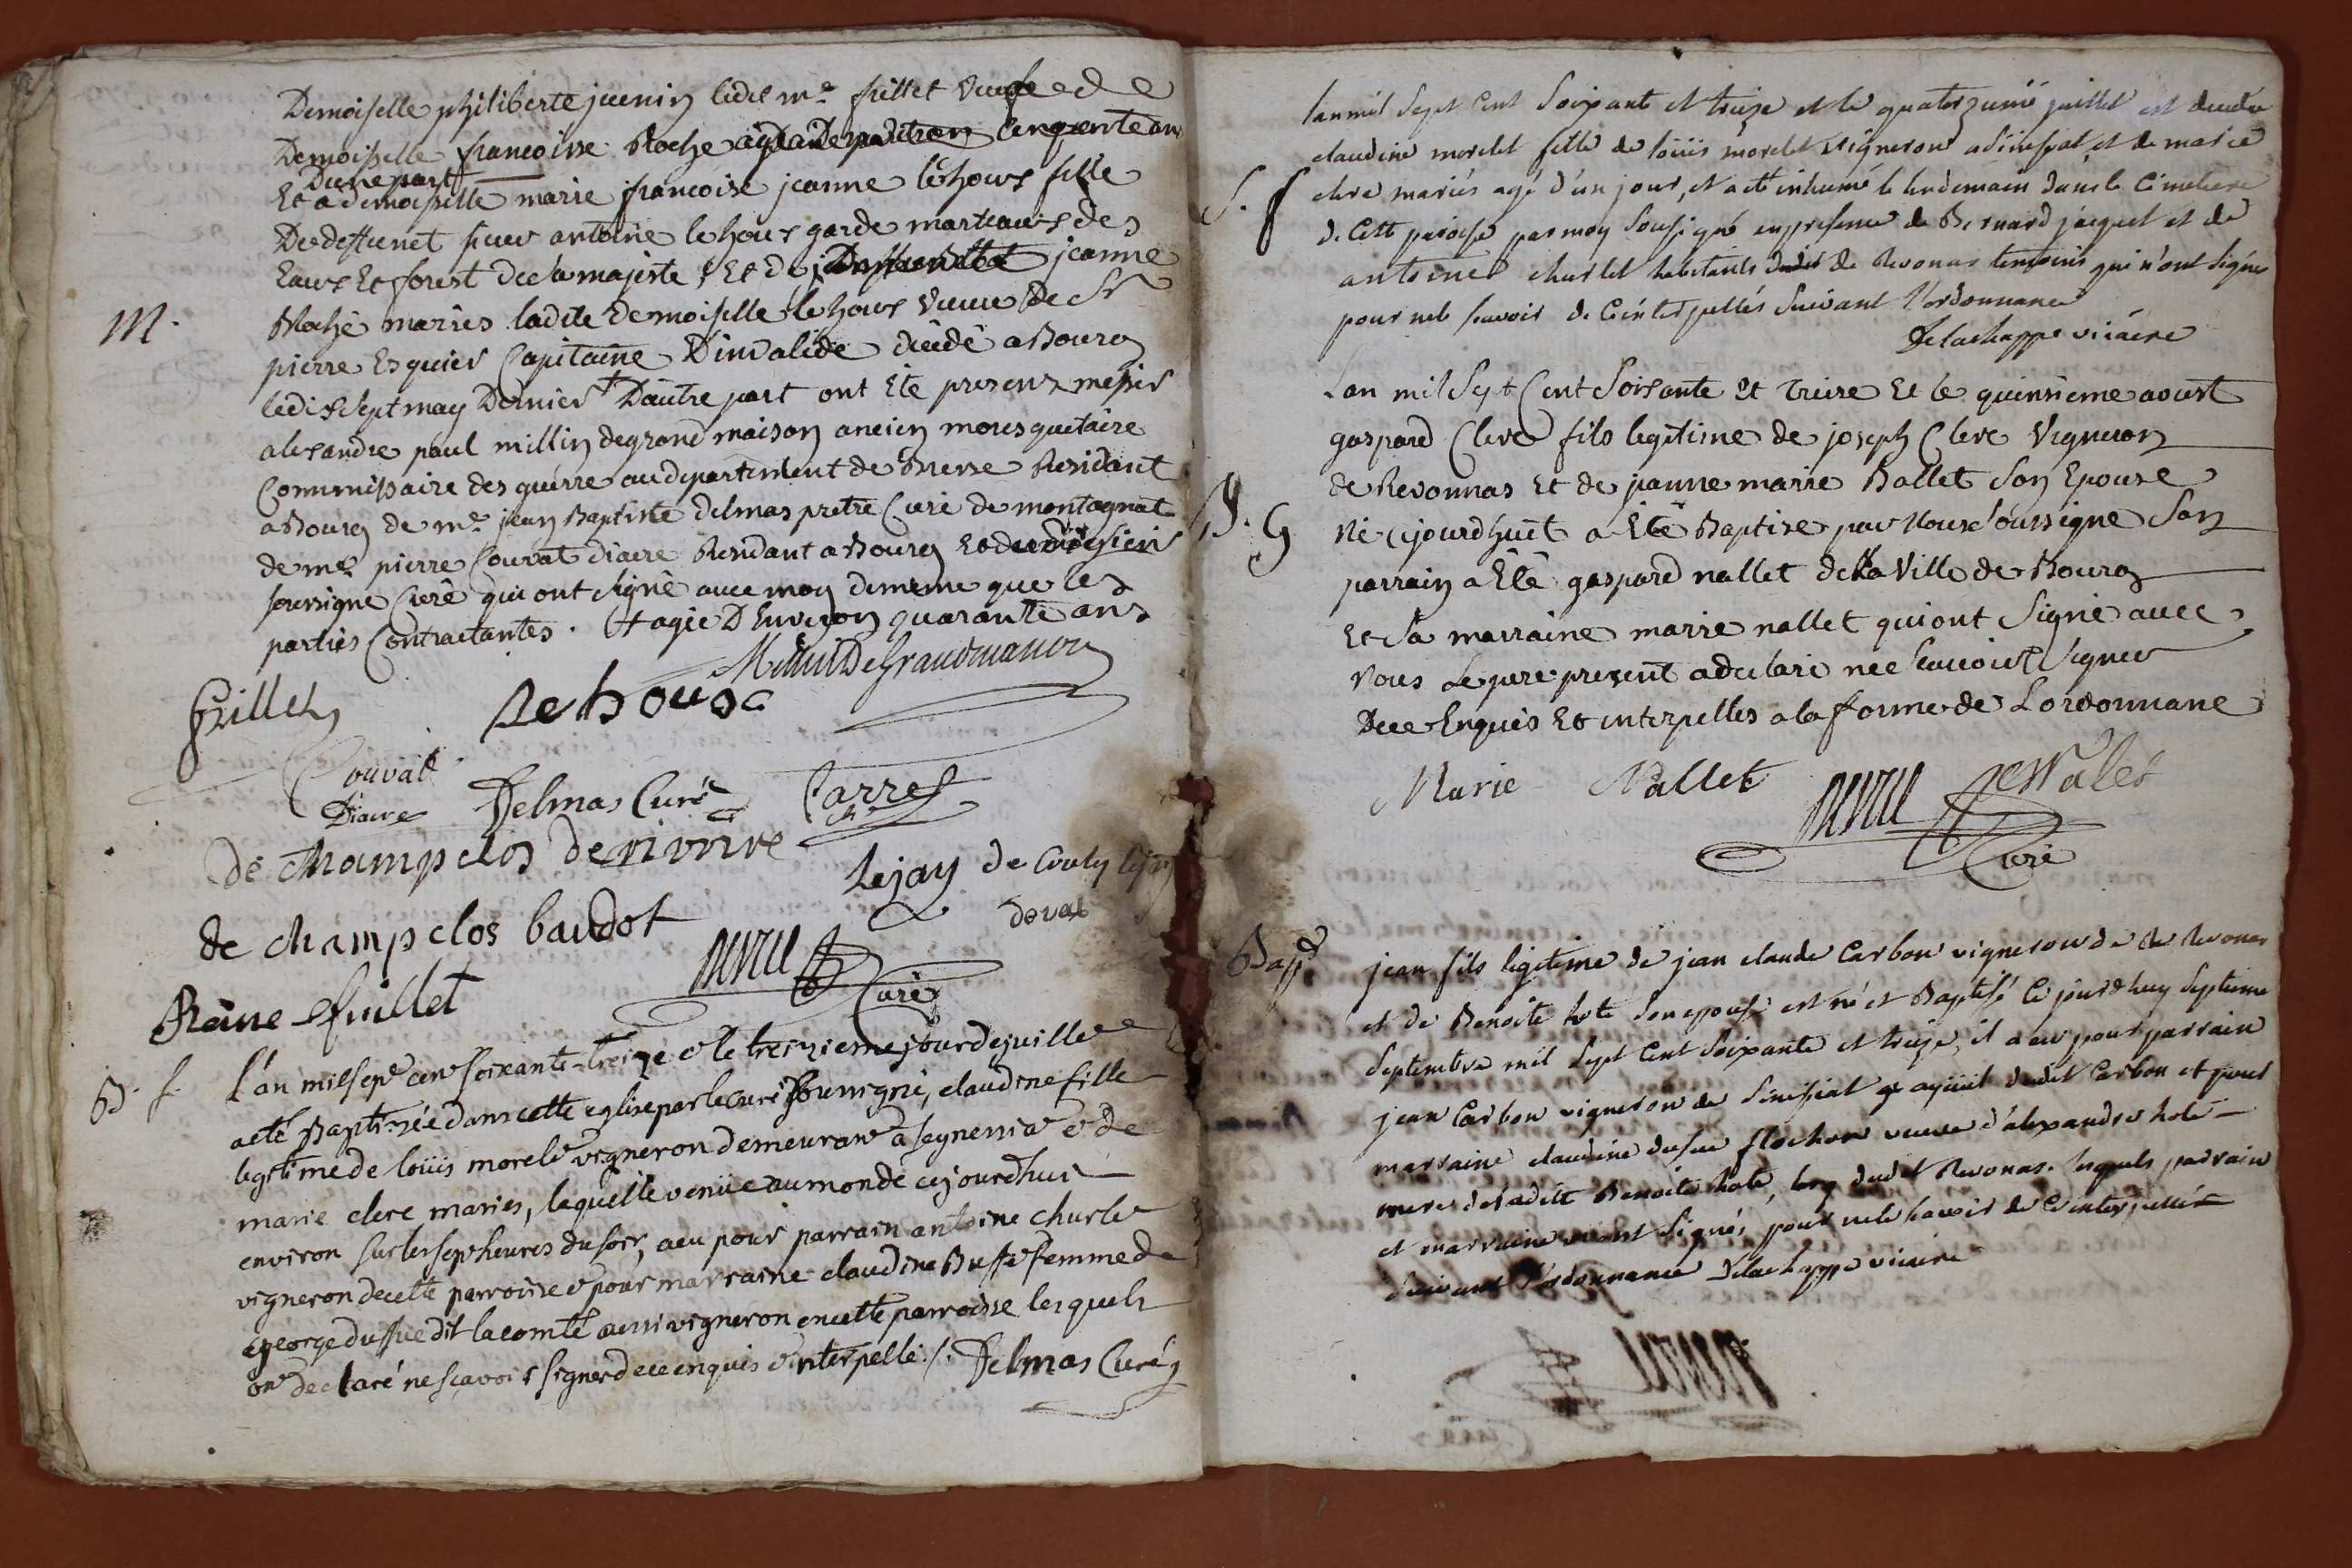 Demoiselle philiberte juenin ledit me fillet veufe de
Demoiselle francoise Roche cinquente ans
D'une part
Et a demoiselle marie francoise jeanne lehous fille
De deffunct sieur antoine lehous garde marteaux des
Eaux Et forest de sa majeste Et de jeanne
M.
Roche maries ladite demoiselle lehous veuve De Sr
pierre Esquier Capitaine D'invalide décédé a Bourg
le dix sept may Dernier + D'autre part ont Eté presens messir
alexandre paul millin de grand maison ancien mousquetaire
Commissaire des guerre au departement de Bresse Residant
a Bourg de me jean Baptiste delmas pretre Curé de montagnat
de me pierre Couvat diacre Residant a Bourg Et
soussigne Curé qui ont signé avec moy de meme que les
parties Contractantes. + agée D'Environ quarante ans
Millin De Grandmaison
fillet
Lehousc
Couvat
Diacre
Delmas Curé
Carref
de champclos de rivoire
Lejay de Couly lejay
deval
de champclos baudot
Curé
Reine fuillet
B. f.
L'an mil sept cent soixante-treize et le treizieme jour de juillet
a eté Baptizée dans cette eglise par le curé soussigné, claudine fille
legitime de loüis morelet vigneron demeurant a seyneссiat et de
marie clere maries, lequelle venüe au monde cejourdhui
environ sur les sept heures du soir, a eu pour parrain antoine churlet
vigneron de cette parroisse et pour marraine claudine Buffet femme de
george duffuc dit lacomte aussi vigneron en cette parroisse lesquels
ont declaré ne sçavoir signer de ce enquis et interpellé./. Delmas Curé
S. f
Lan mil sept Cent soixante et treize et le quatorzieme juillet est decedée
claudine morelet fille de loüis morelet vigneron a Seinessiat et de marie
clere mariés agé d'un jour, et a eté inhumé le lendemain dans le Cimetiere
de Cette paroisse par moy soussigné en presence de Bernard jacquet et de
antoine churlet habitants de Revonas temoins qui n'ont signes
pour ne le scavoir de Ce interpellés suivant l'ordonnance
Delachappe vicaire
Lan mil sept Cent soisante Et treise Et le quinsieme aoust
gaspard Clere fils legitime de joseph Clere vigneron
de Revonnas Et de jeanne marie Ballet son Epouse
B. G
Né cejourdhuit a Eté Baptise par nous soussigne son
parrain a Eté gaspard nallet de la Ville de Bourg
Et sa marraine marie nallet qui ont signé avec
nous Le pere present a declaré nee scavoir signer
Dece Enquis Et interpelles a la forme de Lordonnane
Marie Nallet
Nalet
Curé
Bapt.
jean fils legitime de jean claude Carbon vigneron de Revonas
et de Benoite hote son epouse est né et Baptisé Cejourdhuy septieme
septembre mil sept Cent soixante et treize, il a eu pour parrain
jean Carbon vigneron de Sinissiat ayeüil dudit Carbon et pour
marraine claudine dufuc flochon veuve d'alexandre hote
mere de ladite Benoite hote, dudit Revonas. lesquels parrain
et marraine n'ont signés pour ne le scavoir de Ce interpellés
suivant l'ordonnance Delachappe vicaire